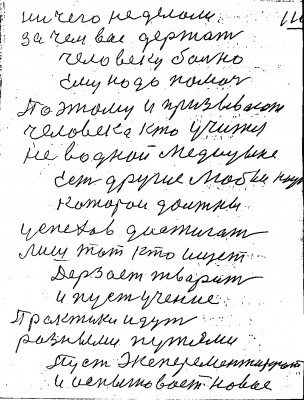 ничего неделали
зачем вас держат
человеку болно
Ему надо помоч
Поэтому и призывают
человека кто учится
не водной Медицине
Ест другие
которои должны
успехов достигат
лиш тот кто ищет
Дерзает творит
и пуст учение
Практики идут
разными путями
Пуст Эксперементируют
и испытовает новое